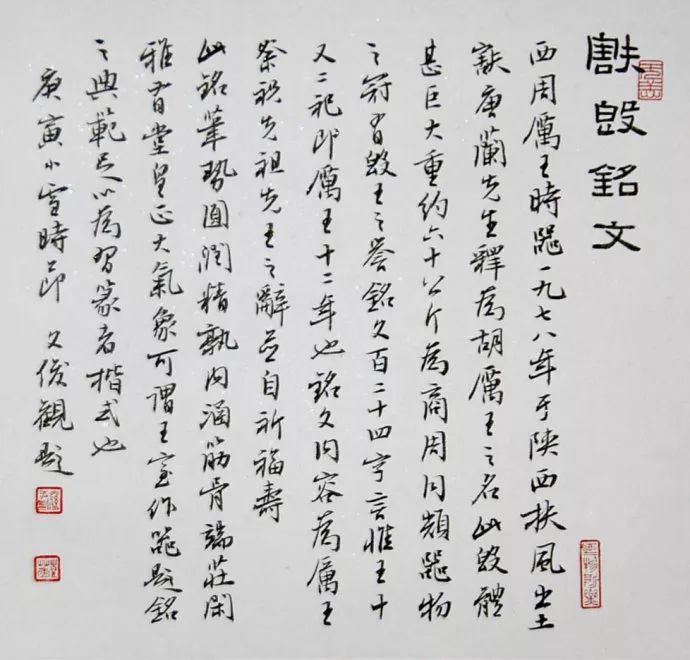 㝬毁銘文
西周厲王時器一九七八年于陝西扶風出土
㝬唐蘭先生釋為胡厲王之名此毁體
甚巨大重約六十公斤為商周同類器物
之冠有毁王之譽銘文百二十四字言惟王十
又二祀即厲王十二年也銘文内容為厲王
祭祝先祖先王之辭並自祈福壽
此銘筆勢圓潤精熟内涵筋骨端莊閑
雅有堂皇正大氣象可謂王室作器題銘
之典範足以為習篆者楷式也
庚寅小雪時節 文俊觀題